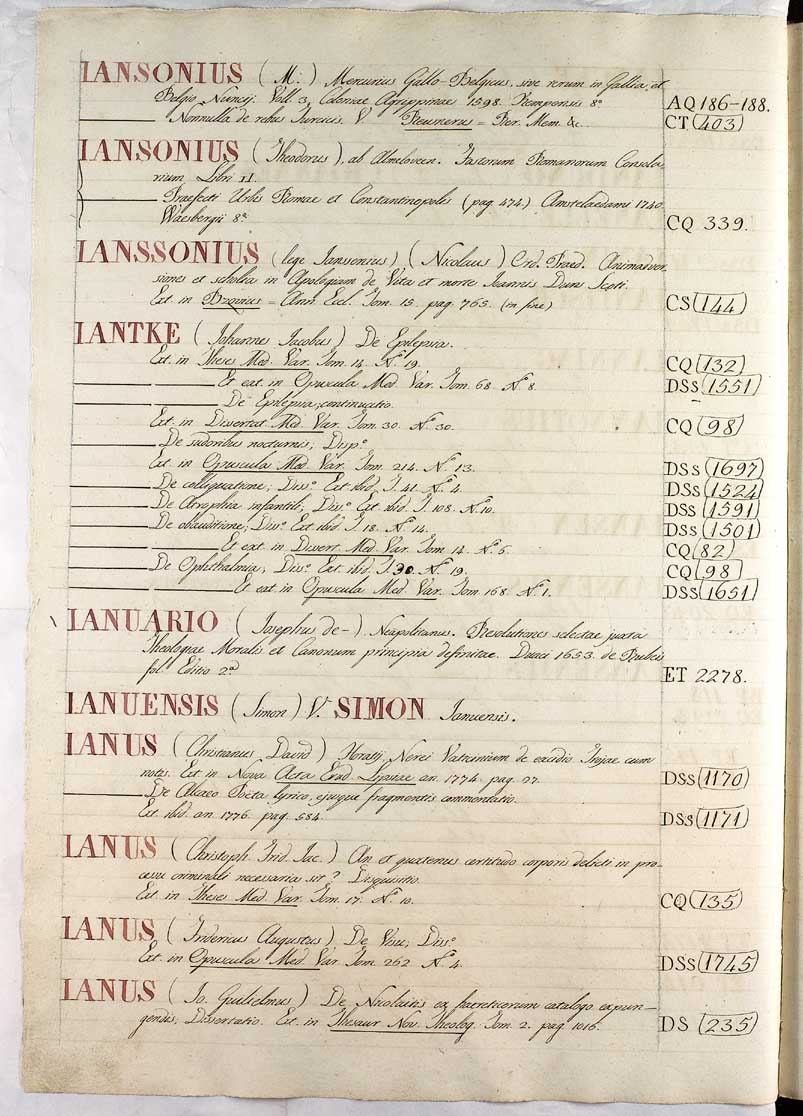 IANSONIUS (M.) Mercurius Gallo-Belgicus, sive rerum in Gallia, et
Belgio Nuncij. Voll. 3. Coloniae Agrippinae 1598. Kempensis 8.º AQ 186-188.
——— Nonnulla de rebus Turcicis. V. Reusnerus = Rer. Mem. &c. CT (403)
IANSONIUS (Theodorus), ab Almeloveen. Fastorum Romanorum Consola
rium Libri II.
——— Praefecti Urbis Romae et Constantinopolis (pag. 474.) Amstelaedami 1740.
Waesbergii 8.º CQ 339.
IANSSONIUS (lege Janssenius) (Nicolaus) Ord. Praed. Animadver
siones et scholia in Apologiam de Vita et morte Joannis Duns Scoti.
Ext. in Bzovius = Ann. Eccl. Tom. 15. pag. 763. (in fine) CS (144)
IANTKE (Johannes Jacobus) De Epilepsia.
Ext. in Theses Med. Var. Tom. 14. N.º 19. CQ (132)
——— ——— Et ext. in Opuscula Med. Var. Tom. 68. N.º 8. DSs (1551)
——— ——— De Epilepsia, continuatio.
Ext. in Dissertat Med. Var. Tom. 30. N.º 30. CQ (98)
——— De sudoribus nocturnis; Disp.º
Ext. in Opuscula Med. Var. Tom. 214. N.º 13. DSs (1697)
——— De colliquatione; Diss.º Ext. ibid. T. 41. N.º 4. DSs (1524)
——— De Atrophia infantil; Diss.º Ext. ibid. T. 108. N.º 10. DSs (1591)
——— De obauditione; Diss.º Ext. ibid. T. 18. N.º 14. DSs (1501)
——— ——— Et ext. in Dissert. Med. Var. Tom. 14. N.º 6. CQ (82)
——— De Ophthalmia; Diss.º Ext. ibid. T. 30. N.º 19. CQ (98)
——— ——— Et ext. in Opuscula Med. Var. Tom. 168. N.º 1. DSs (1651)
IANUARIO (Josephus de-) Neapolitanus. Resolutiones selectae juxta
Theologiae Moralis et Canonum principia definitae. Duaci 1653. de Rubeis
fol. Editio 2.ª ET 2278.
IANUENSIS (Simon) V. SIMON Januensis.
IANUS (Christianus David) Horatij, Nerei Vaticinium de excidio Trojae cum
notis. Ext. in Nova Acta Erud. Lipsiae an. 1774. pag. 97. DSs (1170)
——— De Alcaeo Poëta lyrico, ejusque fragmentis commentatio.
Ext. ibid. an. 1776. pag. 584. DSs (1171)
IANUS (Christoph. Frid. Jac.) An et quatenus certitudo corporis delicti in pro
cessu criminali necessaria sit? Disquisitio.
Ext. in Theses Med. Var. Tom. 17. N.º 10. CQ (135)
IANUS (Fridericus Augustus) De Visu; Diss.º
Ext. in Opuscula Med. Var. Tom. 262. N.º 4. DSs (1745)
IANUS (Jo. Gulielmus) De Nicolaitis ex haereticorum catalogo expun-
gendis; Dissertatio. Ext. in Thesaur Nov. Theolog. Tom. 2. pag. 1016. DS (235)